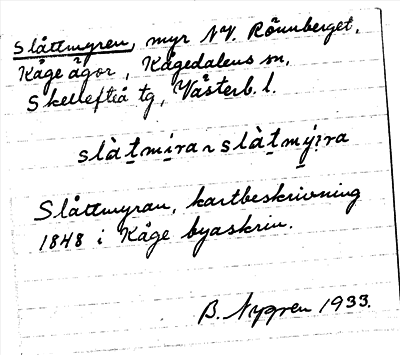 Slåttmyren, myr NV. Rönnberget,
Kåge ägor, Kågedalens sn,
Skellefteå tg, Västerb. l.
slàtmíra ~ slàtmýra
Slåttmyran, kartbeskrivning
1848 i Kåge byaskrin.
B. Nygren 1933.